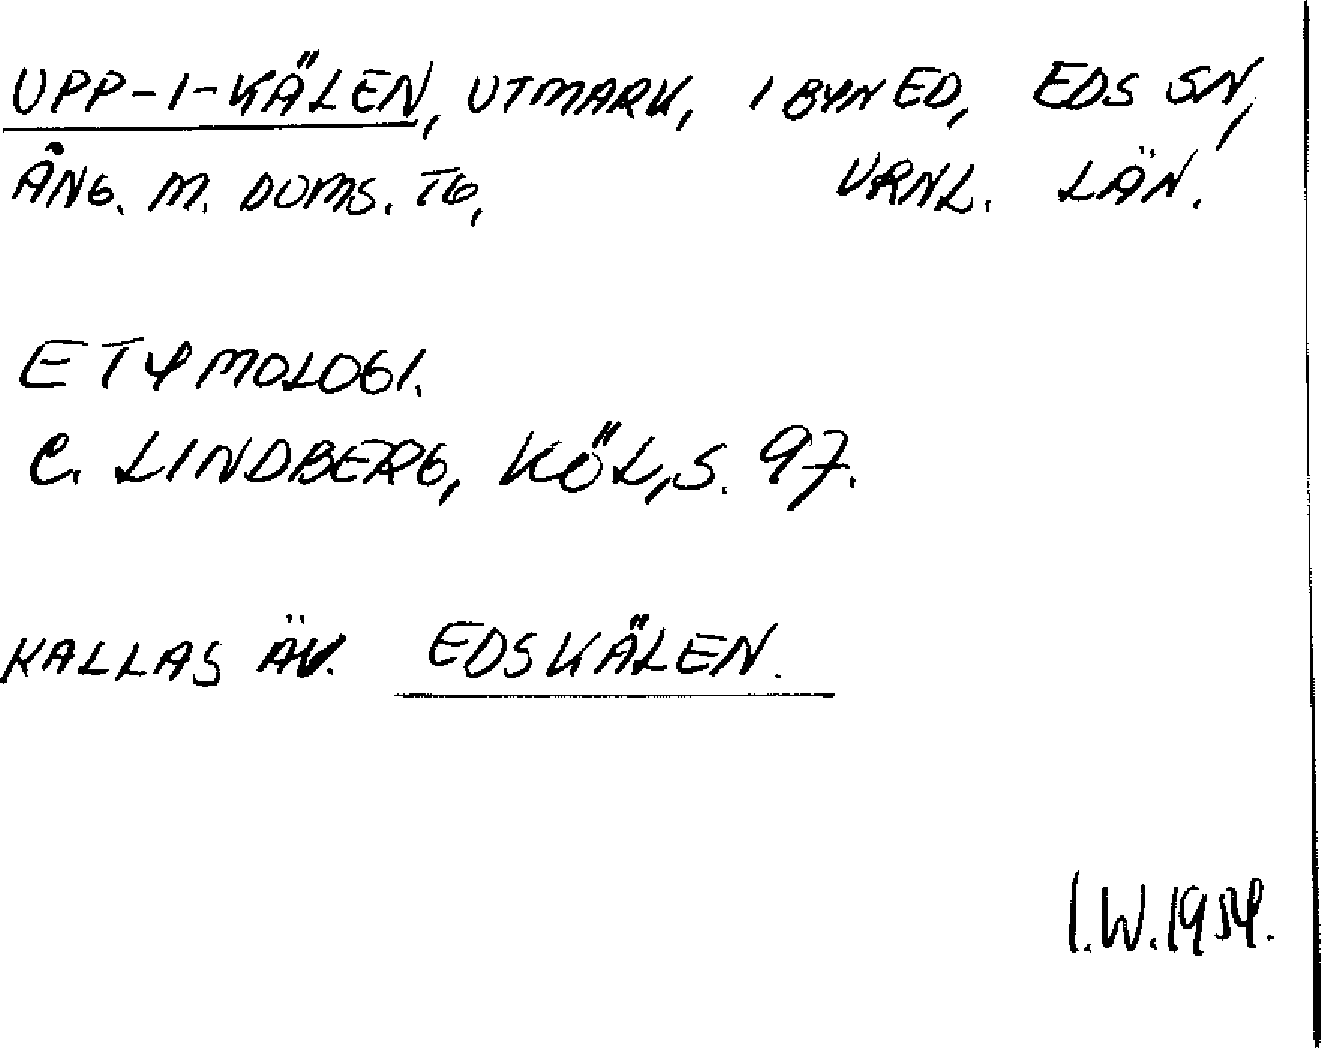 UPP-I-KÄLEN, UTMARK, I BYN ED, EDS SN,
ÅNG. M. DOMS. TG, VRNL. LÄN.
ETYMOLOGI.
C. LINDBERG, KÖL, S. 97.
KALLAS ÄV. EDSKÄLEN.
I.W. 1954.